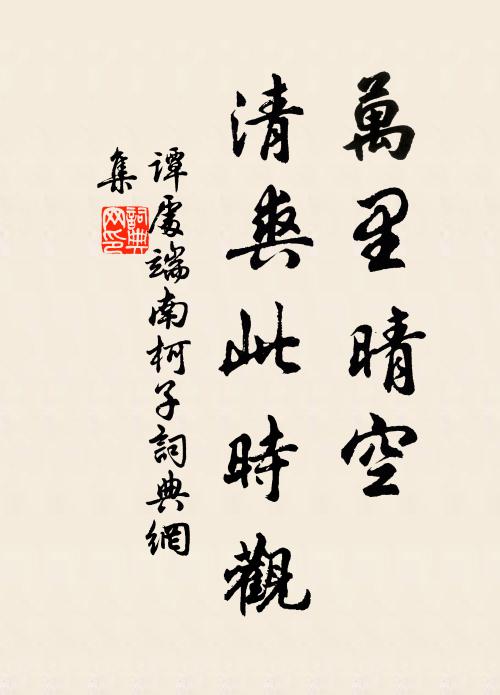 萬里晴空
清爽此時觀
譚處端南柯子詞典網
集
詞典網印